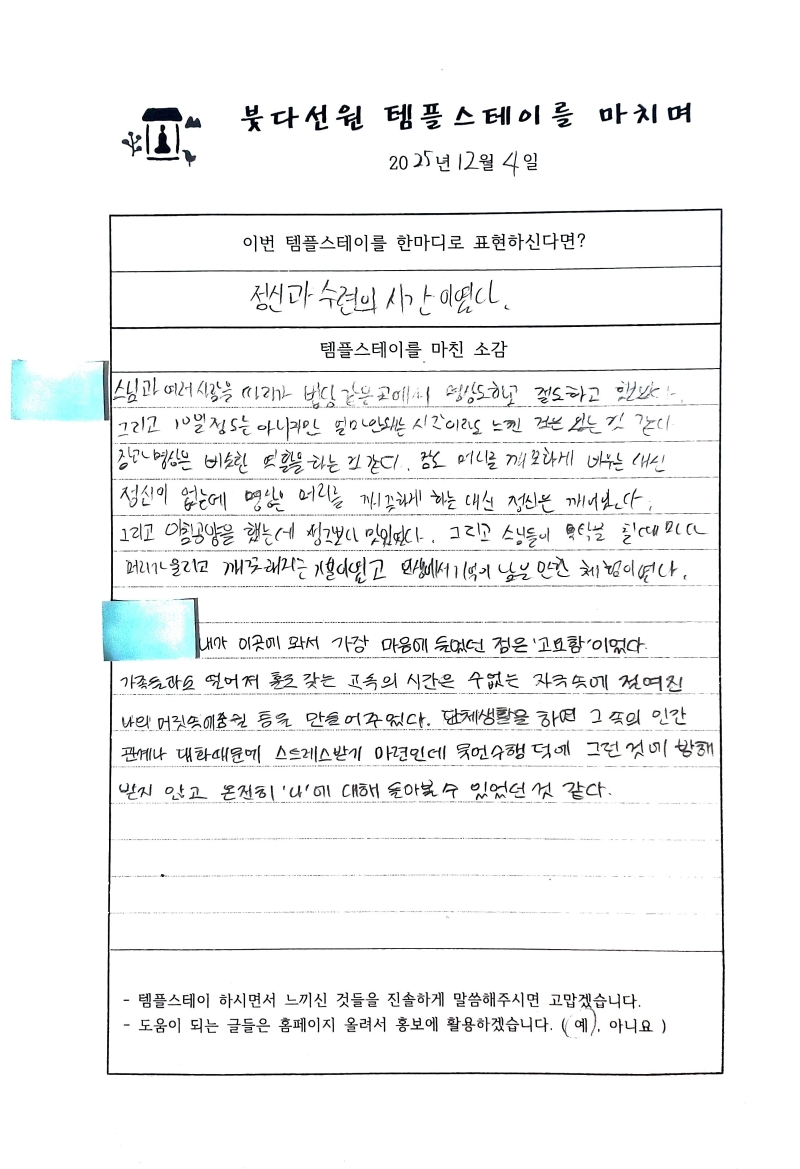 붓다선원 템플스테이를 마치며
2025년 12월 4일
이번 템플스테이를 한마디로 표현하신다면?
정신과 수련의 시간이였다.
템플스테이를 마친 소감
스님과 여러 사람을 따라가 법당 같은 곳에서 명상도하고 절도하고 했었다.
그리고 10일정도는 아니지만 얼마안되는 시간이라도 느낀 것은 있는 것 같다
잠과 명상은 비슷한 역활을 하는 것 같다. 잠도 머리를 깨끗하게 비우는 대신
정신이 없는데 명상은 머리를 깨끗하게 하는 대신 정신은 깨어있다.
그리고 아침공양을 했는데 생각보다 맛있었다. 그리고 스님들이 목탁을 칠때마다
머리가 울리고 깨끗해지는 기분이였고 인생에서 기억에 남을 만한 체험이였다.
내가 이곳에 와서 가장 마음에 들었던 점은 '고요함'이었다.
가족들과도 떨어져 홀로 갖는 고독의 시간은 수없는 자극속에 절여진
나의 머릿속에 쉴 틈을 만들어주었다. 단체생활을 하면 그 속의 인간
관계나 대화때문에 스트레스받기 마련인데 묵언수행 덕에 그런 것에 방해
받지 않고 온전히 '나'에 대해 돌아볼 수 있었던 것 같다.
- 템플스테이 하시면서 느끼신 것들을 진솔하게 말씀해주시면 고맙겠습니다.
- 도움이 되는 글들은 홈페이지 올려서 홍보에 활용하겠습니다. ( 예 , 아니요 )